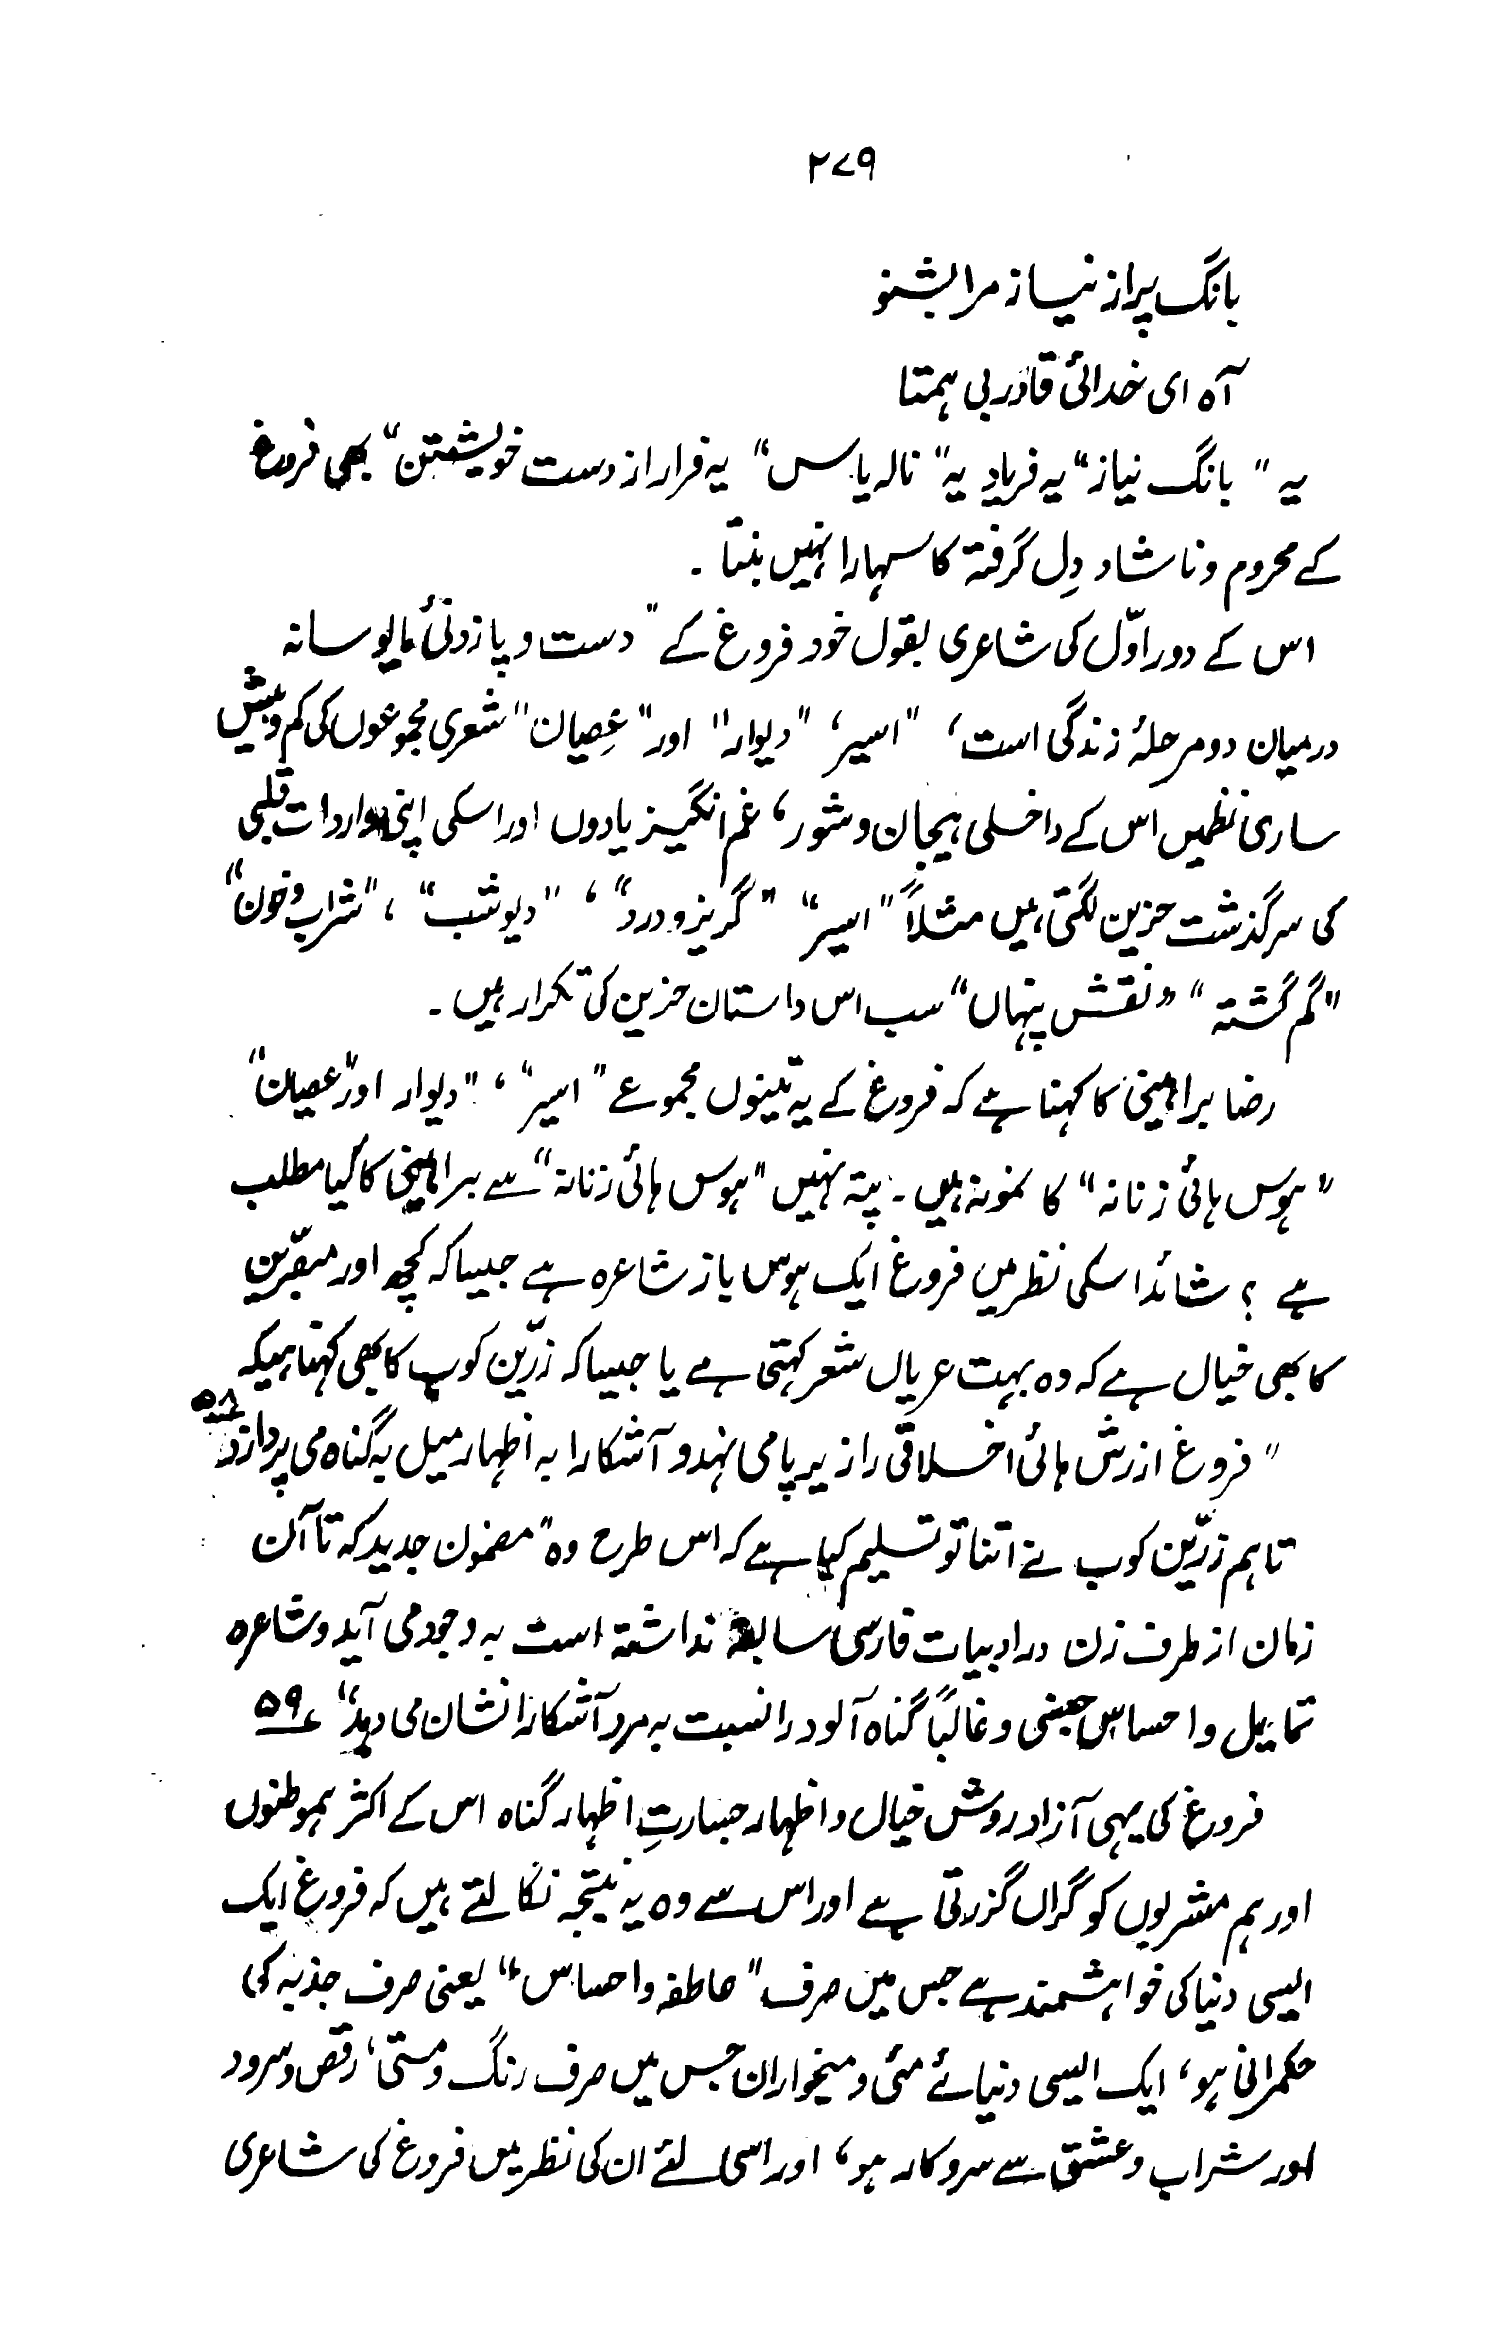 ۲۷۹
بانگ پراز نیاز مرا بشنو
آہ ای خدائی قادر بی ہمتا
یہ "بانگ نیاز" یہ فریاد یہ "نالہ یاس" یہ فرار از دست خویشتن" بھی فروغ
کے محروم و ناشاد دِل گرفتہ کا سہارا نہیں بنتا ۔
اس کے دور اوّل کی شاعری بقول خود فروغ کے "دست و پا زدنیٔ مایوسانہ
درمیان دو مرحلۂ زندگی است، "اسیر، "دیوار" اور "عِصیان" شعری مجموعوں کی کم و بیش
ساری نظمیں اس کے داخلی ہیجان و شور، غم انگیز یادوں اور اسکی اپنی واردات قلبی
کی سرگذشت حزین لگتی ہیں مثلاً "اسیر" "گریز و درد"، "دیو شب"، "شراب و خون"
"گم گشتہ" "نقش پنہاں" سب اس داستان حزین کی تکرار ہیں ۔
رضا براہینی کا کہنا ہے کہ فروغ کے یہ تینوں مجموعے "اسیر"، "دیوار اور "عصیان"
"ہوس ہائی زنانہ" کا نمونہ ہیں ۔ پتہ نہیں "ہوس ہائی زنانہ" سے براہینی کا کیا مطلب
ہے ؟ شائد اسکی نظر میں فروغ ایک ہوس باز شاعرہ ہے جیسا کہ کچھ اور مبصّرین
کا بھی خیال ہے کہ وہ بہت عریاں شعر کہتی ہے یا جیسا کہ زرّین کوب کا بھی کہنا ہیکہ
"فروغ ازرش ہائی اخلاقی را زیر پا می نہد و آشکارا بہ اظہار میل بہ گناہ می پردازد ۵۸
تاہم زرّین کوب نے اتنا تو تسلیم کیا ہے کہ اس طرح وہ "مضمون جدید کہ تا آن
زمان از طرف زن در ادبیات فارسی سابقہ نداشتہ است بہ وجود می آید و شاعرہ
تمایل و احساس جنسی و غالباً گناہ آلود را نسبت بہ مرد آشکارا نشان می دہد" ۵۹
فروغ کی یہی آزاد روش خیال و اظہار جسارتِ اظہار گناہ اس کے اکثر ہموطنوں
اور ہم مشربوں کو گراں گزرتی ہے اور اس سے وہ یہ نتیجہ نکالتے ہیں کہ فروغ ایک
ایسی دنیا کی خواہشمند ہے جس میں صرف "عاطفہ و احساس" یعنی صرف جذبہ کی
حکمرانی ہو، ایک ایسی دنیائے مئی و میخواران جس میں صرف رنگ و مستی، رقص و سرود
اور شراب و عشق سے سروکار ہو، اور اسی لئے ان کی نظر میں فروغ کی شاعری